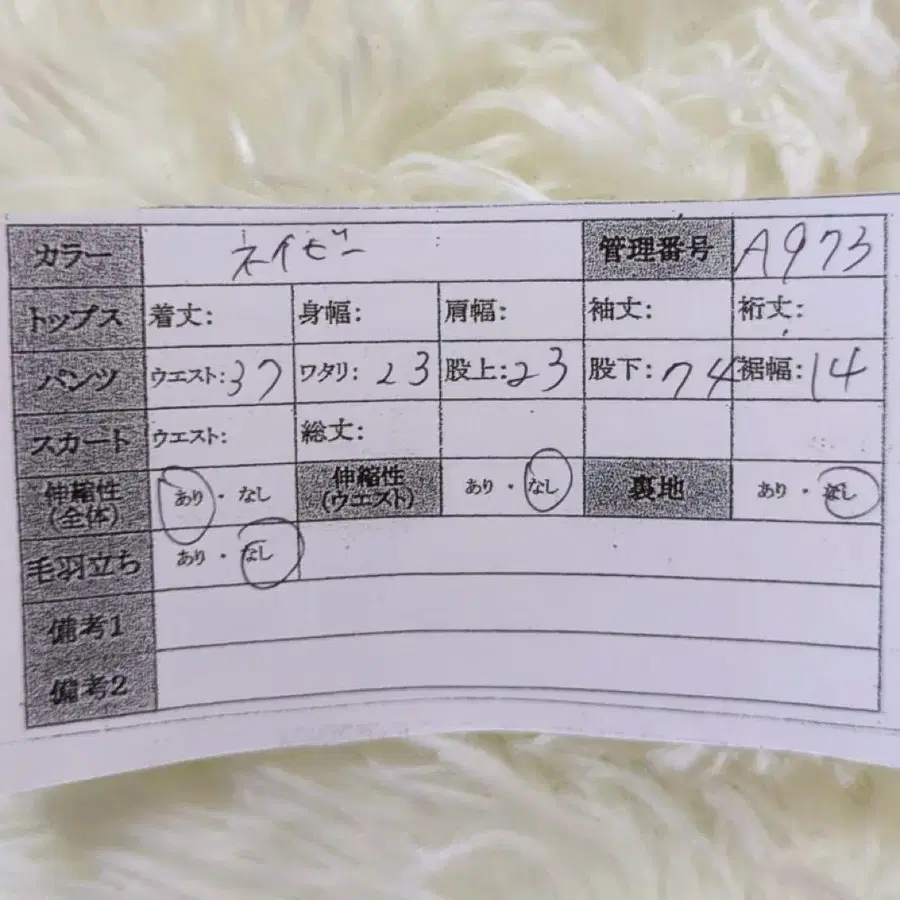 カラー ネイビー 管理番号 A973
トップス 着丈: 身幅: 肩幅: 袖丈: 裄丈:
パンツ ウエスト:37 ワタリ:23 股上:23 股下:74 裾幅:14
スカート ウエスト: 総丈:
伸縮性(全体) あり・なし 伸縮性(ウエスト) あり・なし 裏地 あり・なし
毛羽立ち あり・なし
備考1
備考2